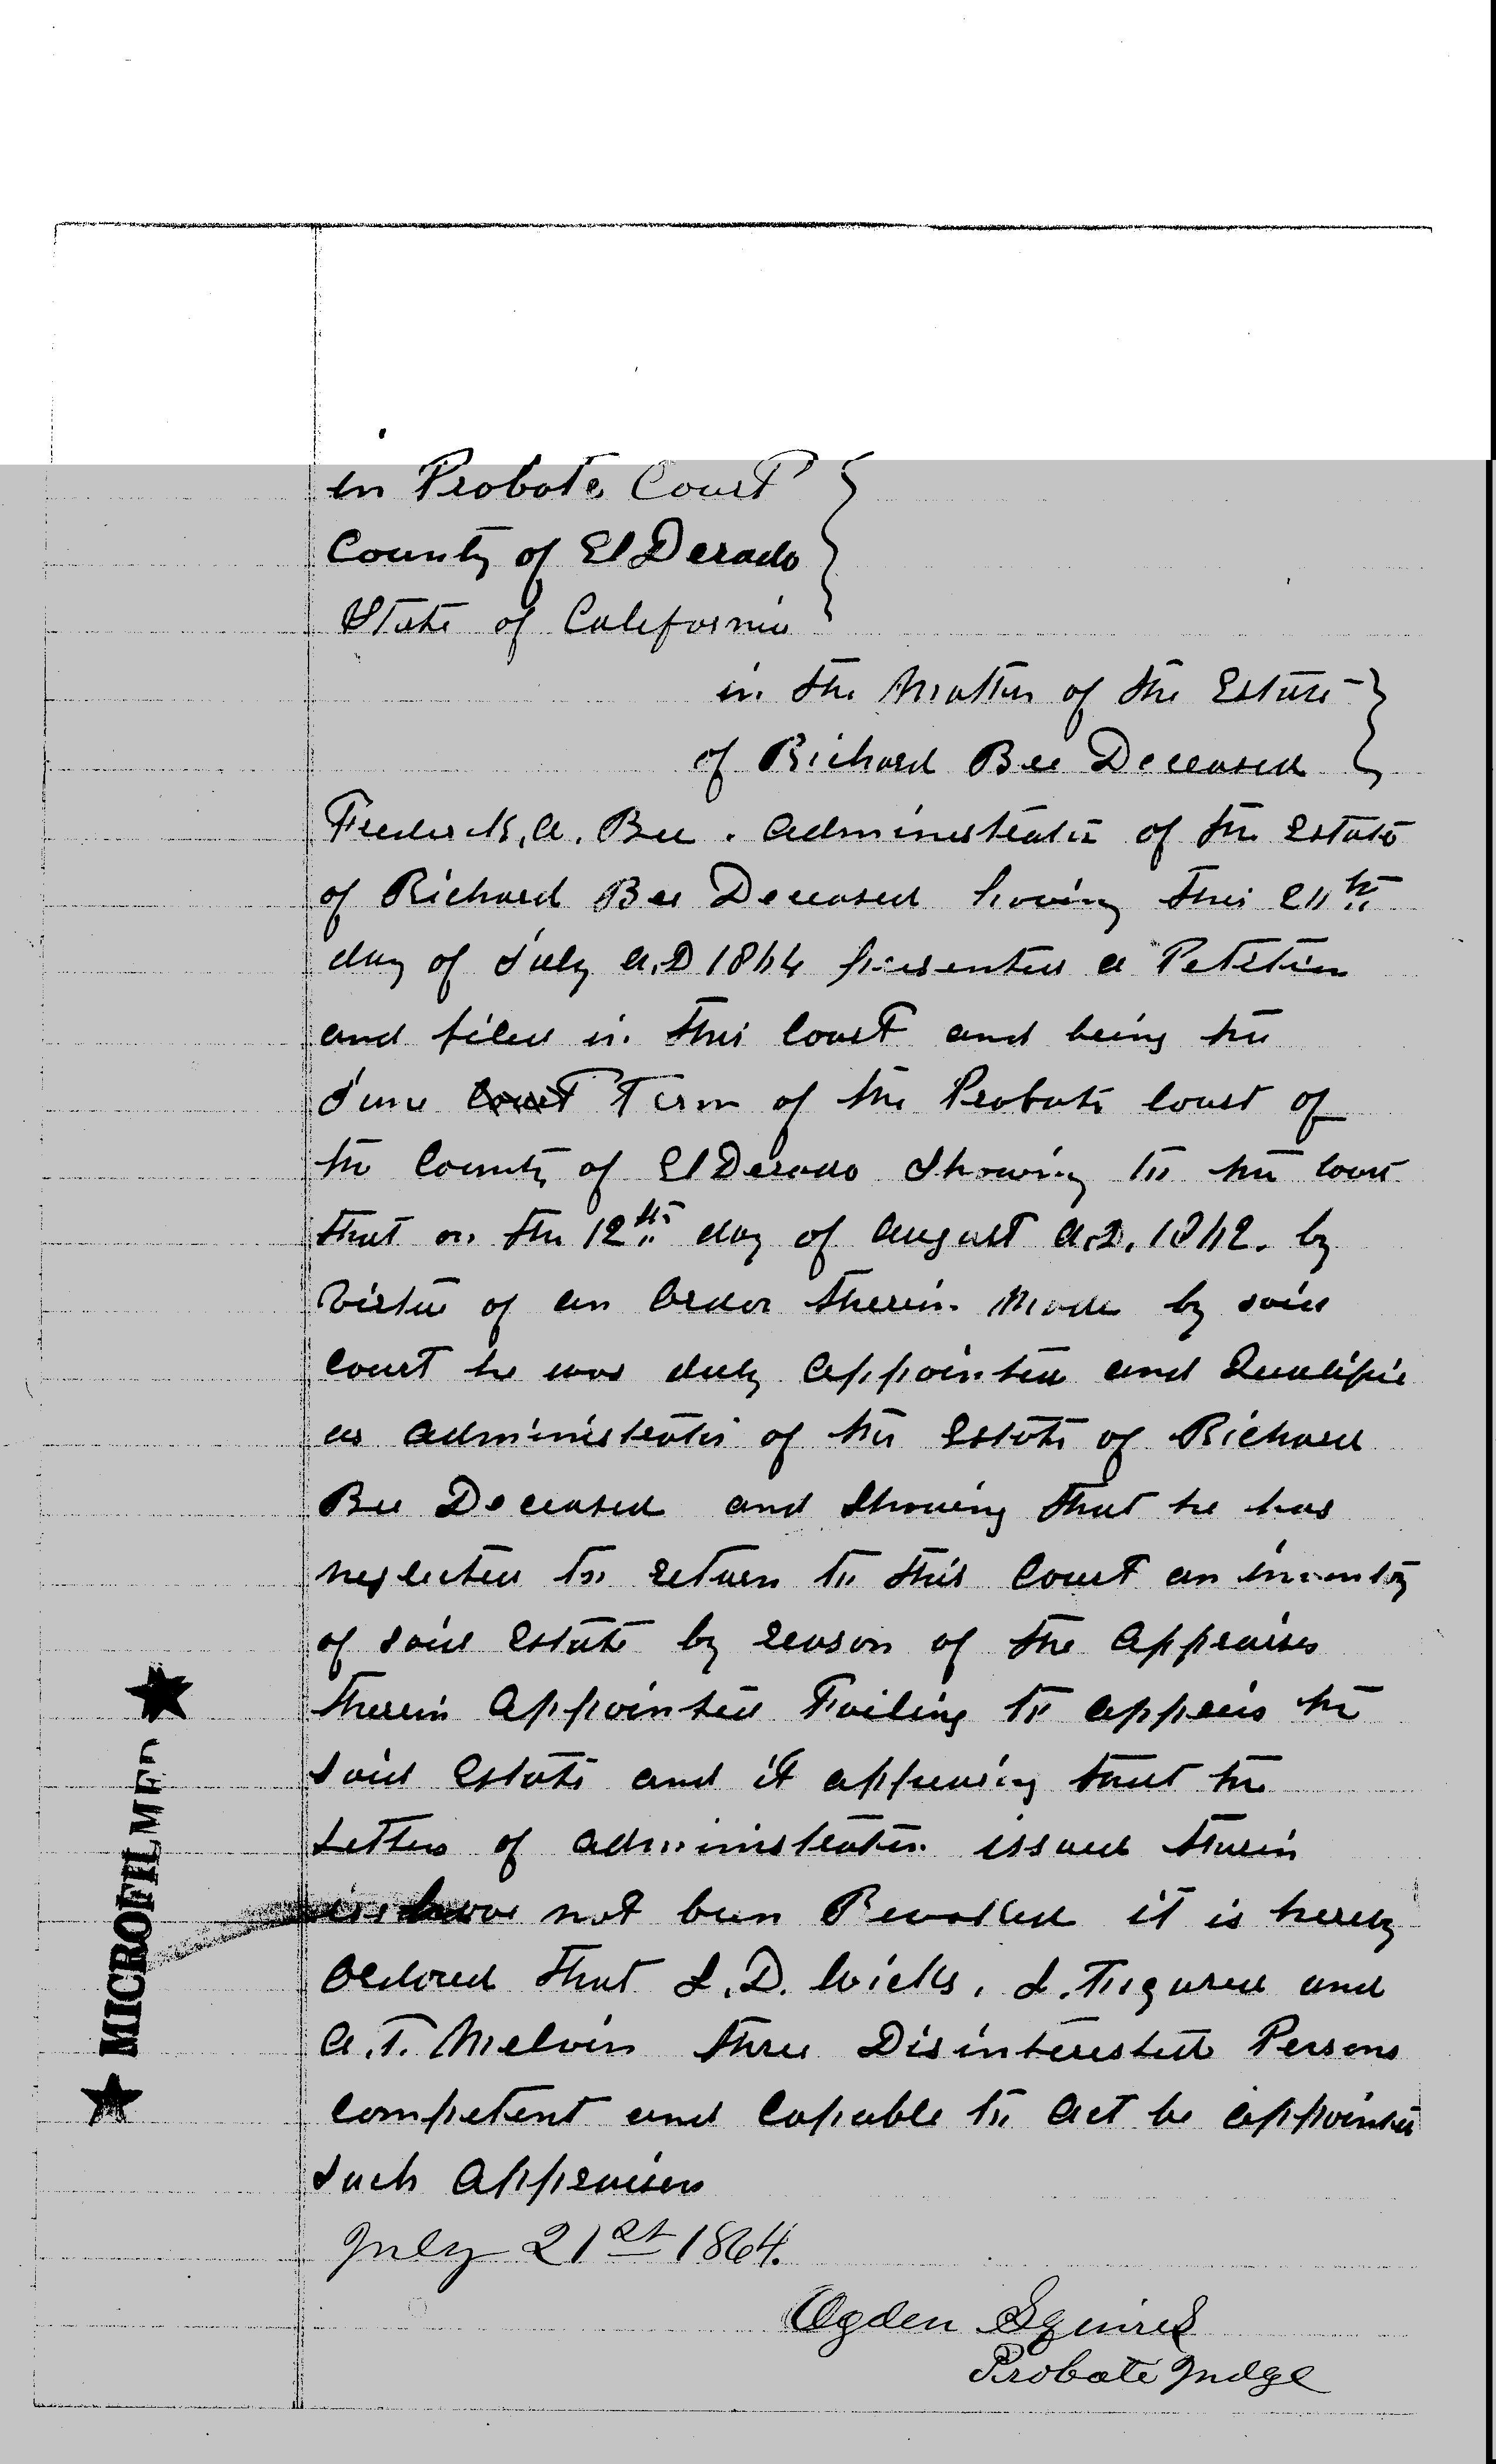 in Probate Court
County of El Derado
State of California
in the Matter of the Estate
of Richard Bee Deceased
Frederick, A. Bee. Administrator of the Estate
of Richard Bee Deceased having this
day of July A.D 1864 presented a Petition
and filed in this Court and being the
June Court Term of the Probate Court of
the County of El Derado Showing to the Court
that on the 12th day of August A.D. 1862. by
Virtue of an Order therein Made by said
Court he was duly appointed and Qualifie
as administrator of the Estate of Richard
Bee Deceased and Showing that he has
neglected to return to this Court an inventory
of said Estate by reason of the Appraisers
therein Appointed Failing to apprais the
said Estate and it appearing that the
Letters of administration issued therein
have not been Revoked it is hereby
Ordered that L. D. Wicks, L. and
A. T. Melvin three Disinterested Persons
Competent and Capable to Act be appointed
such Appraisers
July 21st 1864.
Ogden Squires
Probate Judge
★ MICROFILMED ★